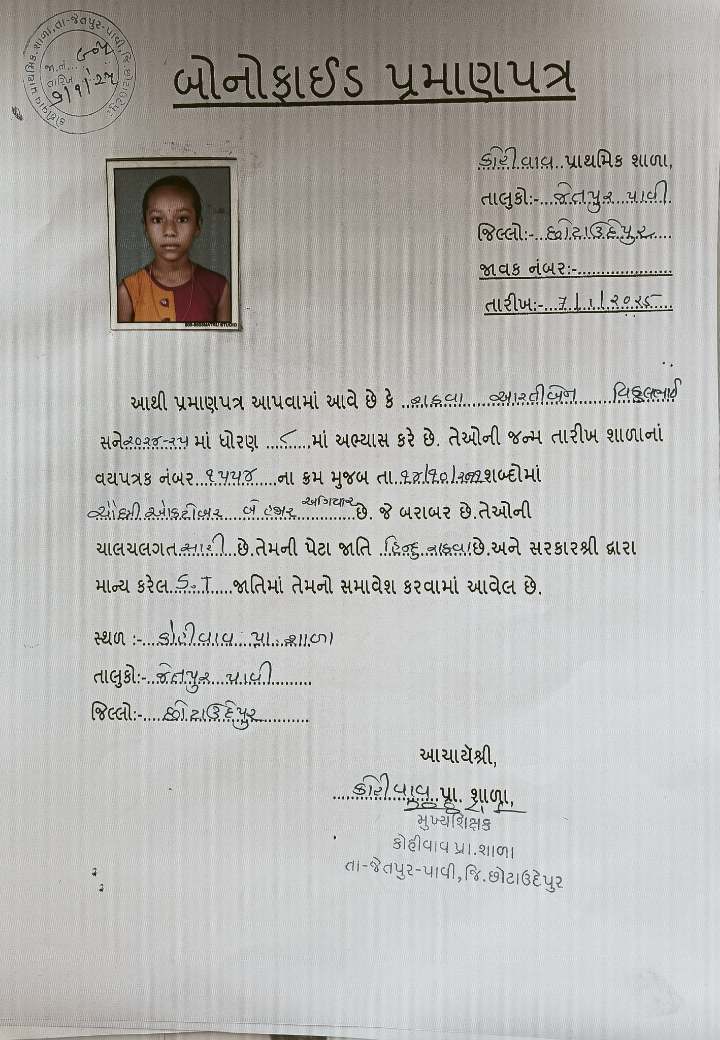 કોહીવાવ પ્રાથમિક શાળા, તા-જેતપુર-પાવી, જિ.છોટાઉદેપુર.
જા.નં.....
તારીખ
૭/૧/૨૫
બોનોફાઈડ પ્રમાણપત્ર
કોહીવાવ..પ્રાથમિક શાળા,
તાલુકો:-...જેતપુર...પાવી.
જિલ્લો:-...છોટાઉદેપુર....
જાવક નંબર:-....................
તારીખ:-....૭/૧/૨૦૨૫....
MATHU STUDIO
આથી પ્રમાણપત્ર આપવામાં આવે છે કે ..રાઠવા.....આરતીબેન.....વિઠ્ઠલભાઈ
સને૨૦૨૪-૨૫ માં ધોરણ ...૮...માં અભ્યાસ કરે છે. તેઓની જન્મ તારીખ શાળાનાં
વયપત્રક નંબર..૧૫૫૪....ના ક્રમ મુજબ તા.૧૪/૧૦/૨૦૧૧શબ્દોમાં
ચૌદમી ઓક્ટોબર બે હજાર અગિયાર છે. જે બરાબર છે.તેઓની
ચાલચલગત.સારી.છે.તેમની પેટા જાતિ ..હિન્દુ રાઠવા.છે.અને સરકારશ્રી દ્વારા
માન્ય કરેલ.S.T.....જાતિમાં તેમનો સમાવેશ કરવામાં આવેલ છે.
સ્થળ :-...કોહીવાવ...પ્રા..શાળા
તાલુકો:-..જેતપુર..પાવી.........
જિલ્લો:-....છોટાઉદેપુર...........
આચાર્યેશ્રી,
....કોહીવાવ.પ્રા. શાળા,
મુખ્યશિક્ષક
કોહીવાવ પ્રા.શાળા
તા-જેતપુર-પાવી,જિ.છોટાઉદેપુર